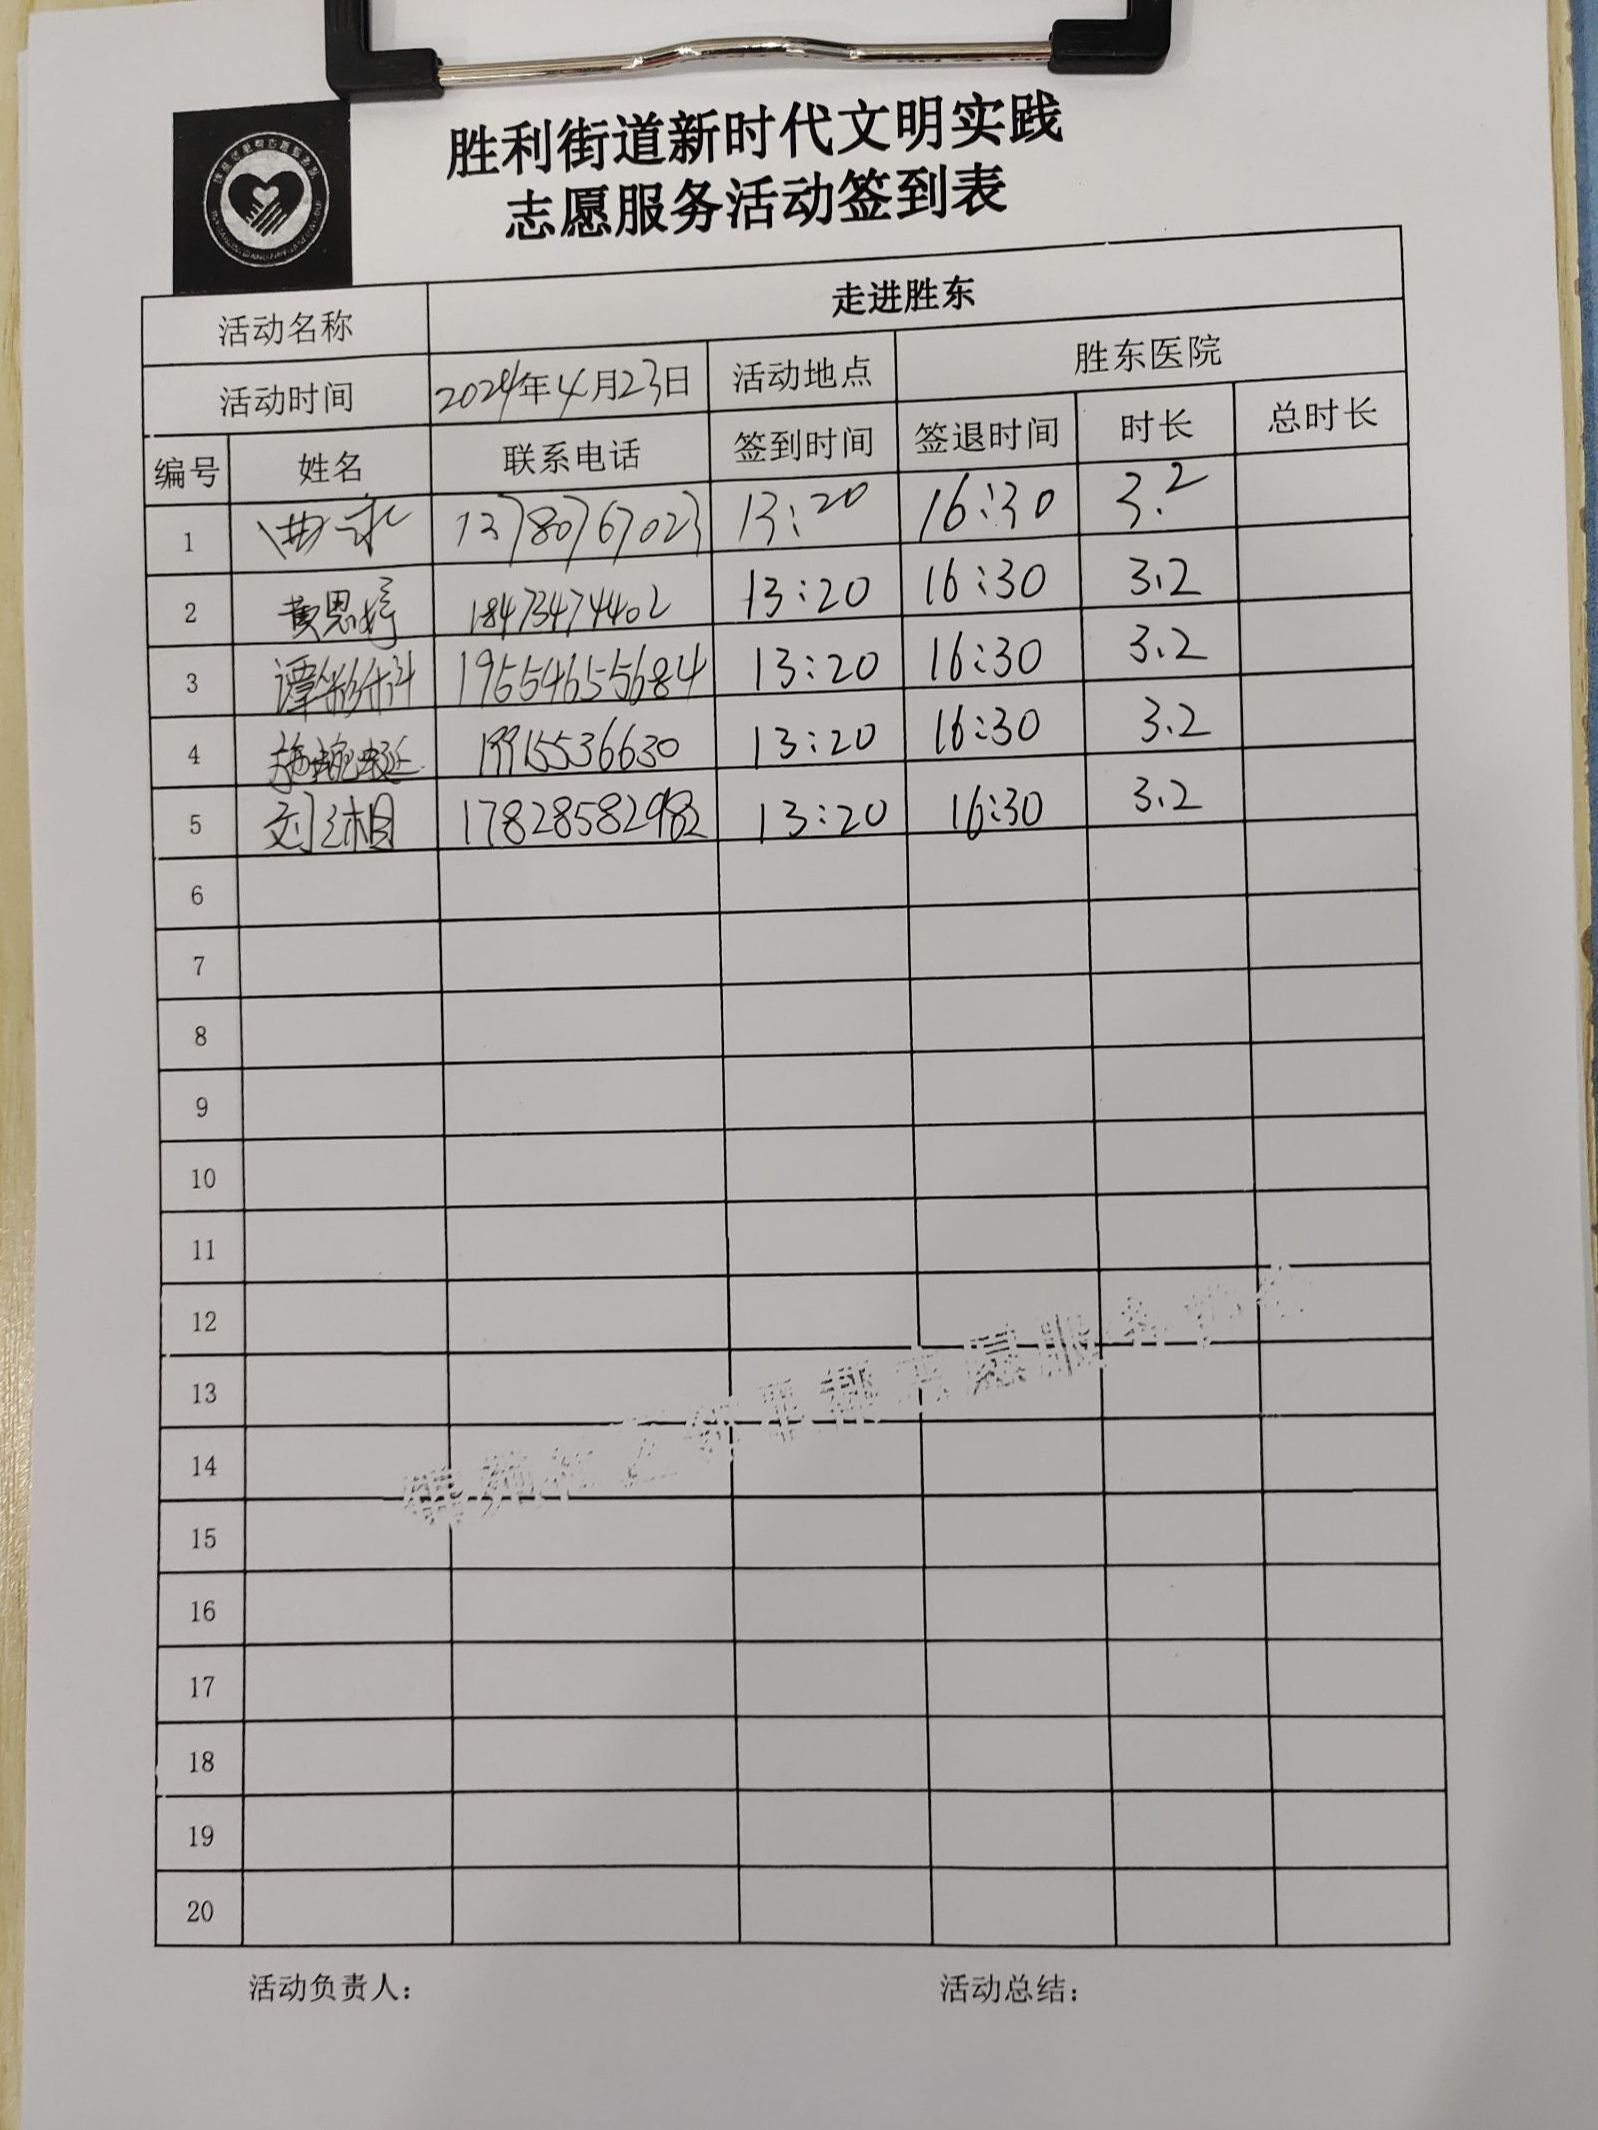 胜利街道新时代文明实践
志愿服务活动签到表
活动名称 走进胜东
活动时间 2024年4月23日 活动地点 胜东医院
编号 姓名 联系电话 签到时间 签退时间 时长 总时长
1 13780767023 13:20 16:30 3.2
2 黄思婷 18473474402 13:20 16:30 3.2
3 谭 19655465684 13:20 16:30 3.2
4 19915536630 13:20 16:30 3.2
5 刘湘 13:20 16:30 3.2
6
7
8
9
10
11
12
13
14
15
16
17
18
19
20
活动负责人： 活动总结：